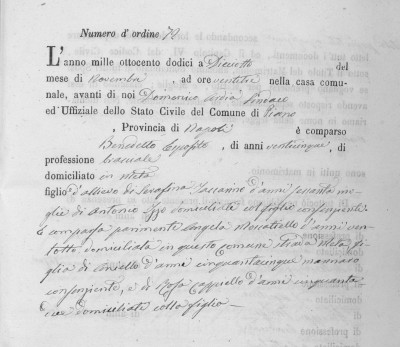 Numero d' ordine 72
L'anno mille ottocento dodici a Diciotto del
mese di Novembre, ad ore ventitre nella casa comu-
nale, avanti di noi Domenico Sindaco
ed Uffiziale dello Stato Civile del Comune di Piano
, Provincia di Napoli è comparso
Benedetto Esposito, di anni venticinque, di
professione
domiciliato in Meta
figlio d'allievo di Serafina d'anni sessanta mo-
glie di Antonio domiciliata col figlio consenziente
È comparsa parimente Angela d'anni ven-
totto domiciliata in questo comune Meta fi-
glia di Aniello d'anni cinquantacinque marinaro
consenziente, e di Rosa Cappiello d'anni cinquanta
domiciliata colla figlia